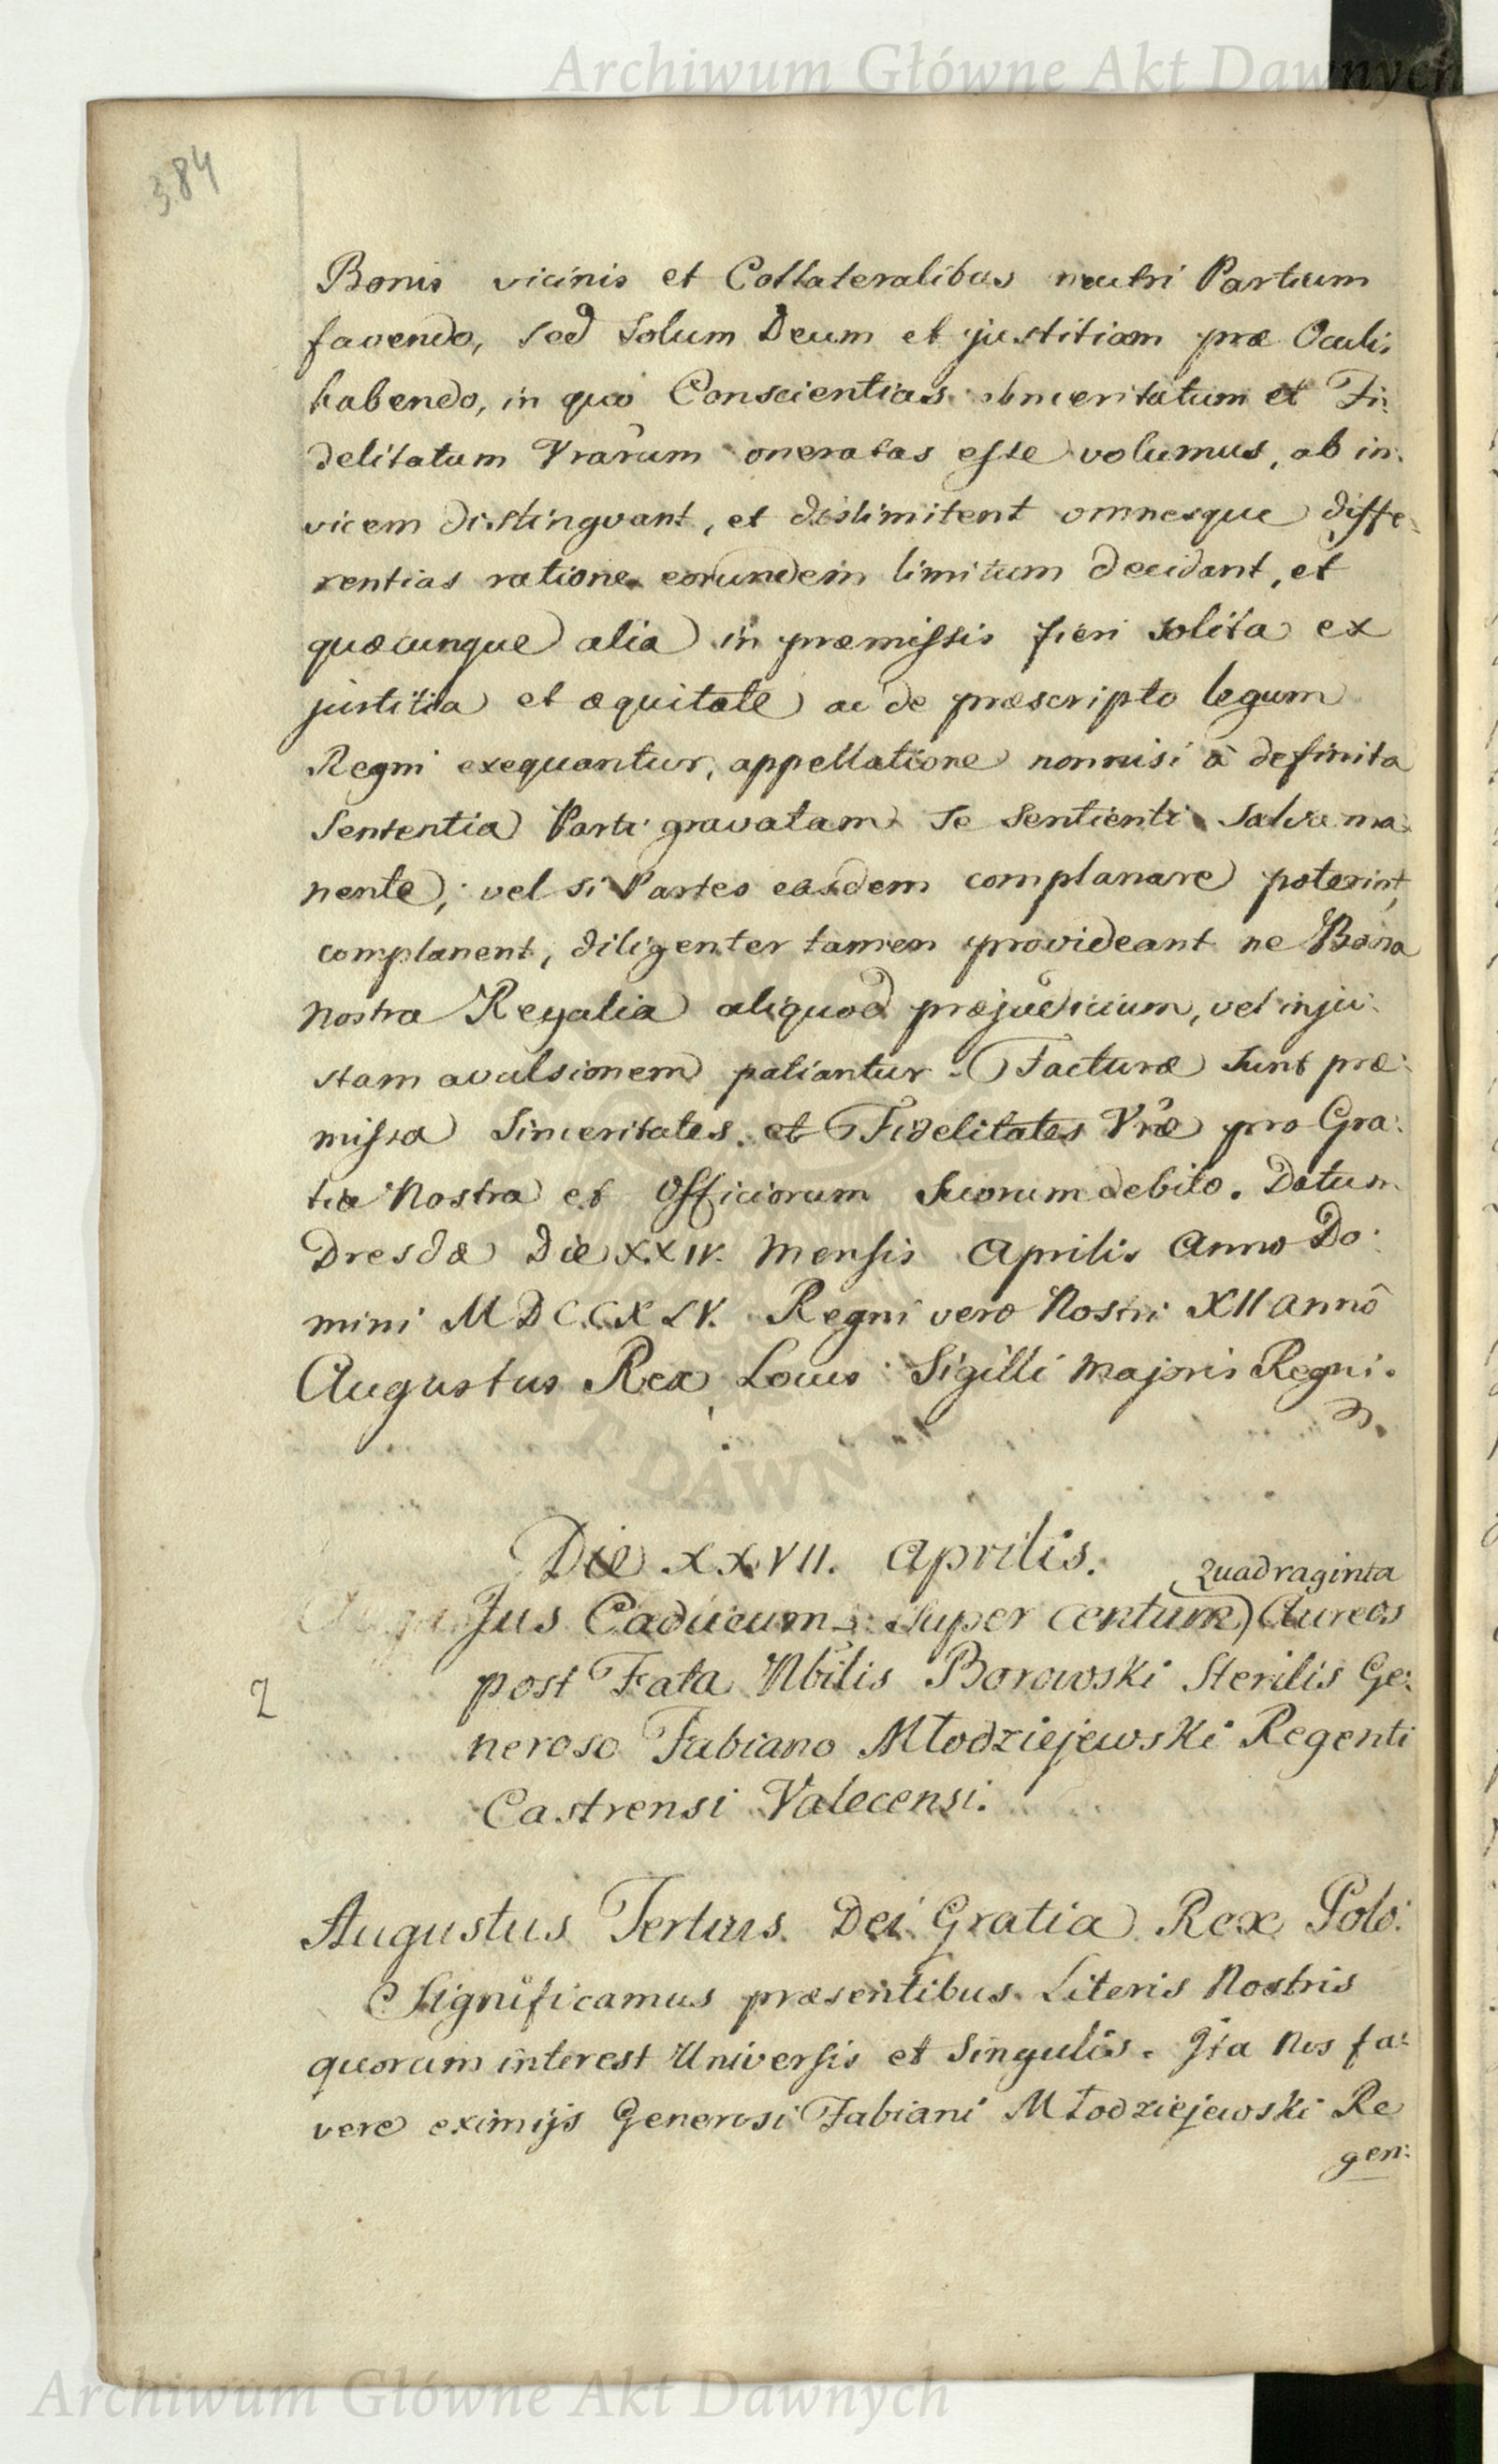 Archiwum Główne Akt Dawnych
384
Bonis vicinis et Collateralibus neutri Partium
favendo, sed solum Deum et justitiam præ Oculis
habendo, in quo Conscientias sinceritatum et Fi:
delitatum Vrarum oneratas esse volumus, ab in:
vicem distingvant, et dislimitent omnesque diffe:
rentias ratione eorundem limitum decidant, et
quæcunque alia in præmissis fieri solita ex
justitia et æquitate ac de præscripto legum
Regni exequantur, appellatione nonnisi à definita
Sententia Parti gravatam se sentienti salva ma:
nente; vel si Partes easdem complanare poterint,
complanent, diligenter tamen provideant ne Bona
nostra Regalia aliquod præjudicium, vel inju:
stam avulsionem patiantur. Facturæ sunt præ:
missa Sinceritates et Fidelitates Vræ pro Gra:
tia Nostra et Officiorum suorum debito. Datum
Dresdæ Die XXIV. Mensis Aprilis Anno Do:
mini MDCCXLV. Regni vero Nostri XII annô
Augustus Rex Locus Sigilli Majoris Regni.
Die XXVII. Aprilis.
Quadraginta
Jus Caducum super centum Aureos
post Fata Nbilis Borowski Sterilis Ge:
2
neroso Fabiano Młodziejewski Regenti
Castrensi Valecensi.
Augustus Tertius Dei Gratia Rex Polo:
Significamus præsentibus Literis Nostris
quorum interest Universis et Singulis. Ita Nos fa:
vere eximijs Generosi Fabiani Młodziejewski Re
gen:
Archiwum Główne Akt Dawnych